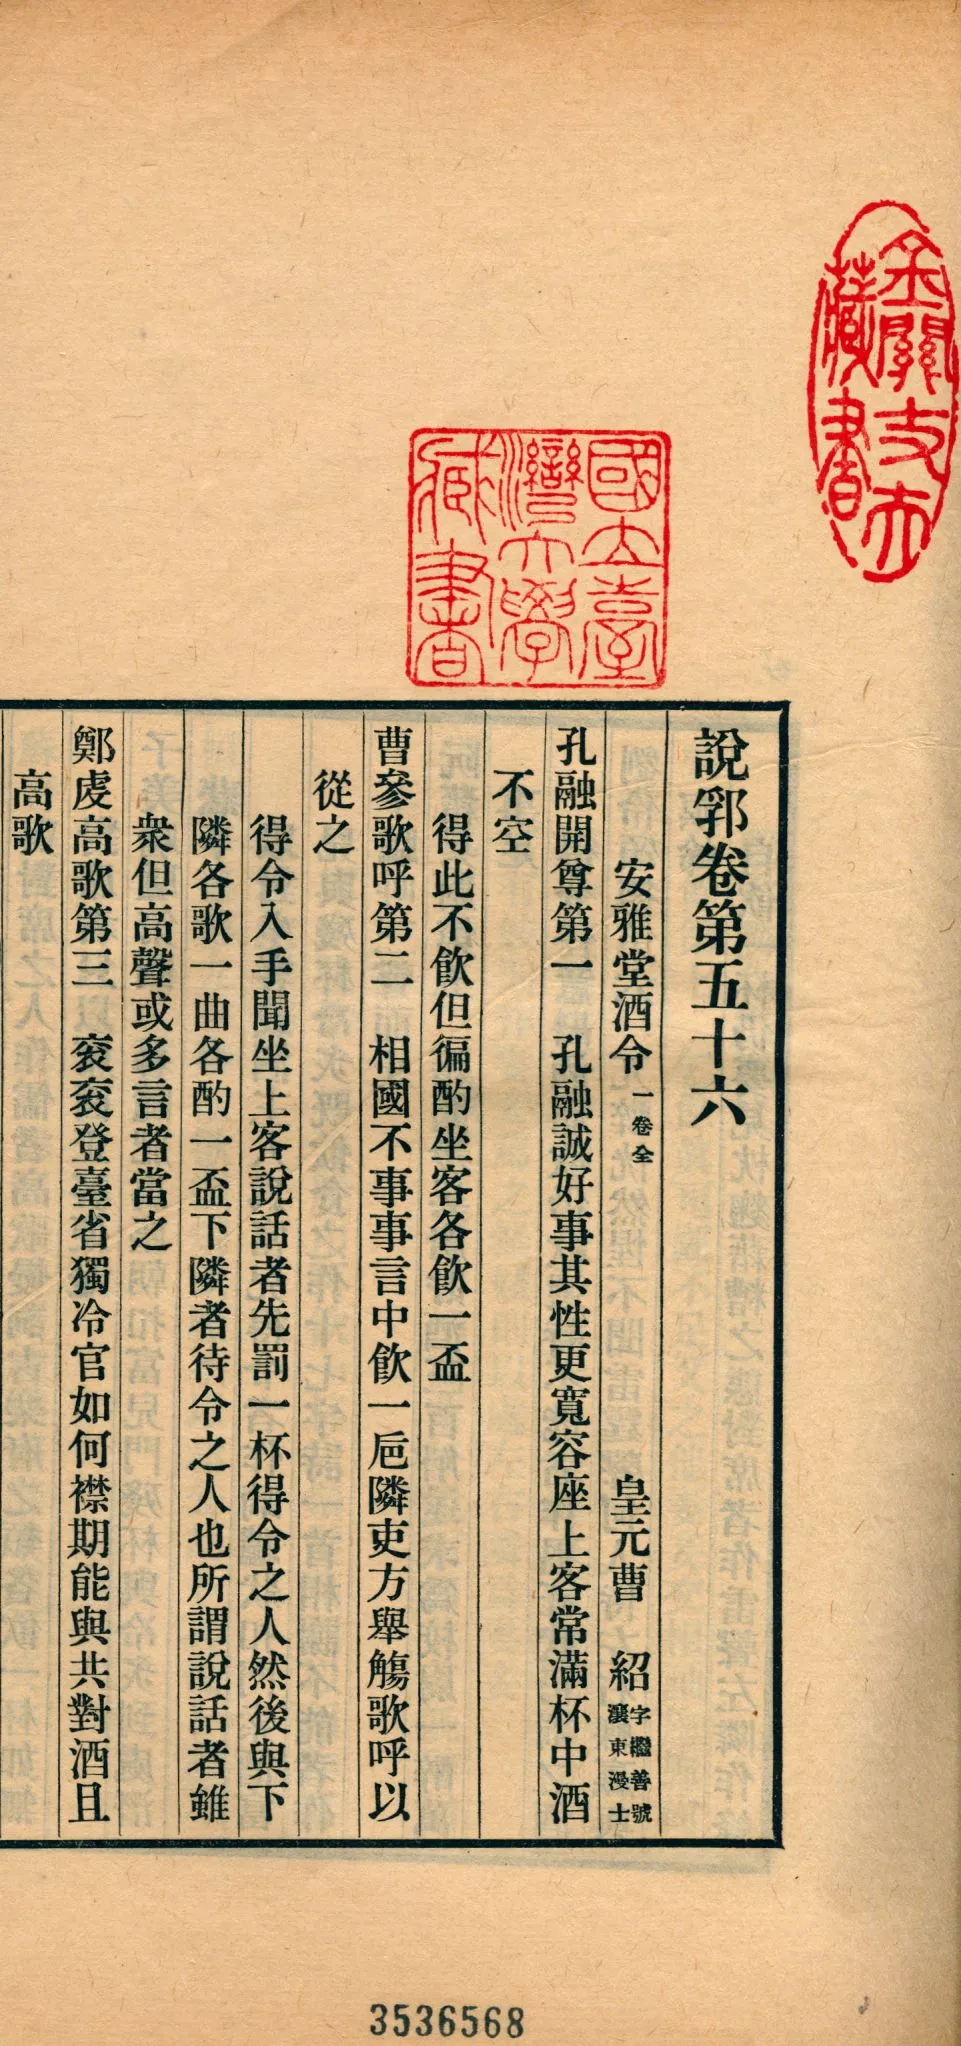 說郛卷第五十六
安雅堂酒令 一卷全 皇元曹 紹 字繼善號瀼東漫士
孔融開尊第一 孔融誠好事其性更寬容座上客常滿杯中酒
不空
得此不飲但徧酌坐客各飲一盃
曹參歌呼第二 相國不事事言中飲一巵隣吏方舉觴歌呼以
從之
得令入手聞坐上客說話者先罰一杯得令之人然後與下
隣各歌一曲各酌一盃下隣者待令之人也所謂說話者雖
衆但高聲或多言者當之
鄭虔高歌第三 衮衮登臺省獨冷官如何襟期能與共對酒且
高歌
國立臺灣大學藏書
藏書
3536568